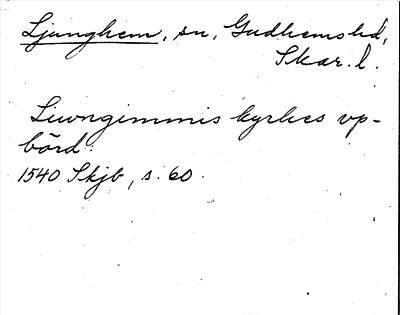 Ljunghem, sn, Gudhems hd,
Skar. l.
Liwngimmis kyrkes vp-
börd.
1540 Skjb, s. 60.